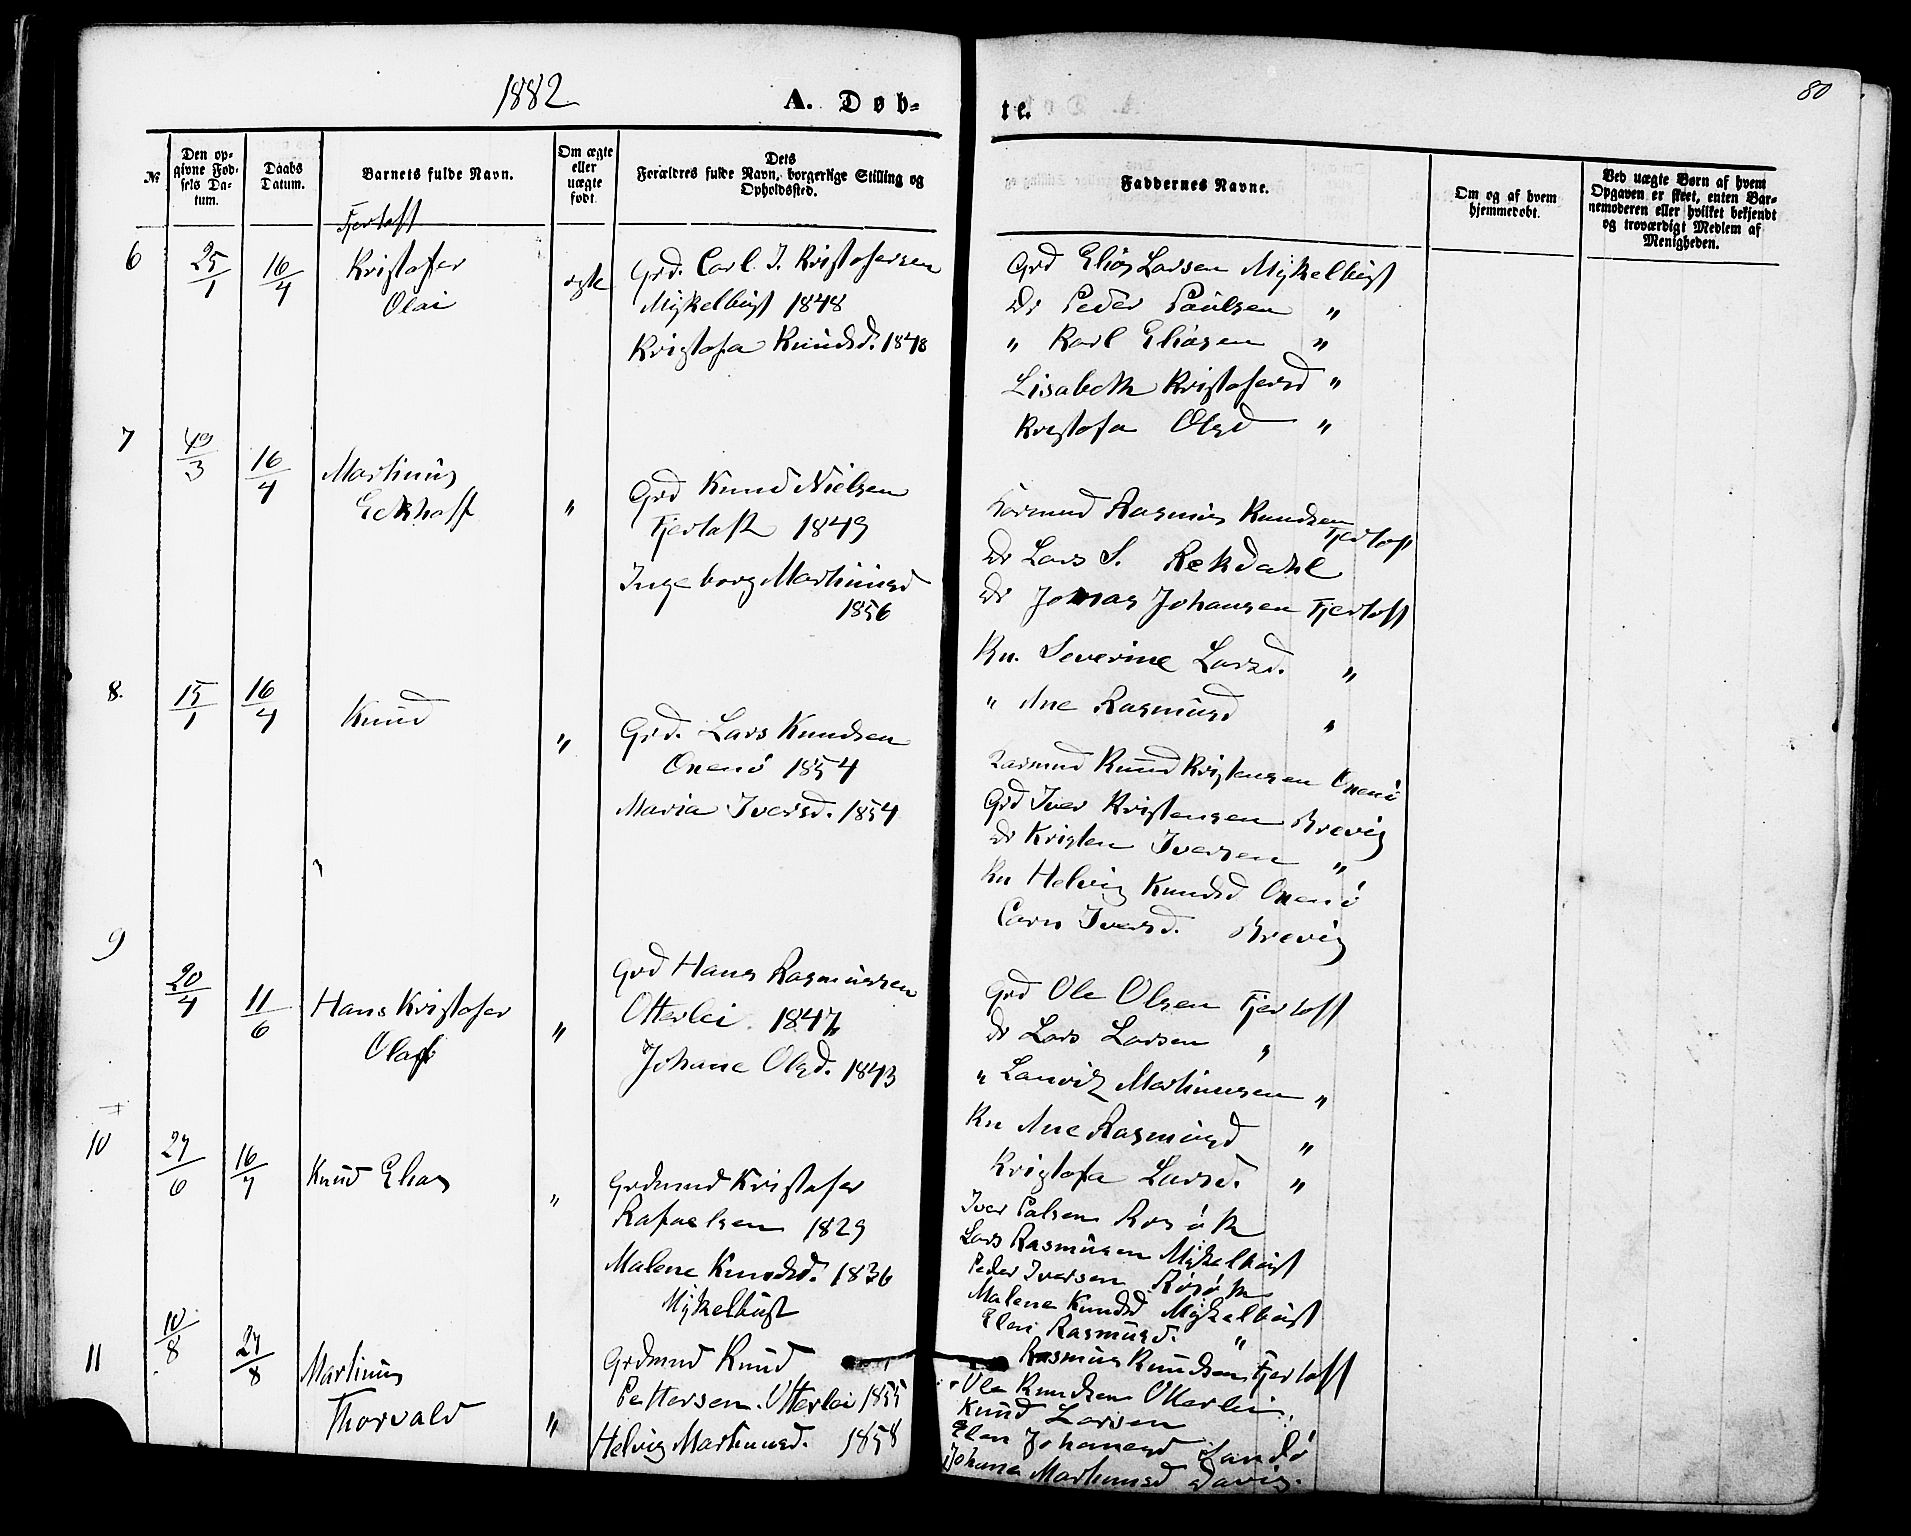 1882
A. Døb-
te.
80
№
Den op-
givne Fød-
sels Da-
tum.
Daabs
Datum.
Barnets fulde Navn.
Om ægte
eller
uægte
født.
Dets
Forældres fulde Navn, borgerlige Stilling og
Opholdssted.
Faddernes Navne.
Om og af hvem
hjemmedøbt.
Ved uægte Børn af hvem
Opgaven er skeet, enten Bar-
nemoderen eller hvilket bekjendt
og troværdigt Medlem af
Menigheden.
Fjertoft
6
25/1
16/4
Kristofer
Olai
ægte
Grd. Carl J. Kristofersen
Mykelbust 1848
Kristofa Knudsd. 1848
Grd Elias Larsen Mykelbust
Do Peder Paulsen "
" Karl Eliasen "
Lisabeth Kristofersd "
Kristofa Olsd "
7
16/4
Martinus
Eckhoff
"
Grd Knud Nielsen
Fjertoft 1849
Ingeborg Martinusd
1856
Formnd Rasmus Knudsen
Fjertoft
Do Lars S. Rekdahl
Do Jonas Johansen Fjertoft
Kn. Severine Larsd. "
" Ane Rasmusd "
8.
15/1
16/4
Knud
"
Grd. Lars Knudsen
Onenø 1854
Maria Iversd. 1854
Knud Kristensen Onenø
Grd Iver Kristensen Brevig
Do Kristen Iversen "
Kn Helvig Knudsd Onenø
Carn Iversd. Brevig
9
20/4
11/6
Hans Kristofer
Olaf
"
Grd Hans Rasmussen
Otterlei. 1847
Johane Olsd. 1843
Grd Ole Olsen Fjertoft
Do Lars Larsen "
" Lauritz Martinusen "
Kn Ane Rasmusd "
Kristofa Larsd. "
10
27/6
16/7
Knud Elias
"
Grdmnd Kristofer
Rafaelsen 1829
Malene Knudsd. 1836
Mykelbust
Iver Palsen Røsøk
Lars Rasmusen Mykelbust
Peder Iversen Røsøk
Malene Knudsd Mykelbust
Elen Rasmusd. "
11
10/8
27/8
Martinus
Thorvald
"
Grdmnd Knud
Pettersen. Otterlei 1855
Helvig Martinusd. 1858
Rasmus Knudsen Fjertoft
Ole Knudsen Otterlei
Knud Larsen
Elen Johanesd Sandø
Johana Martinusd